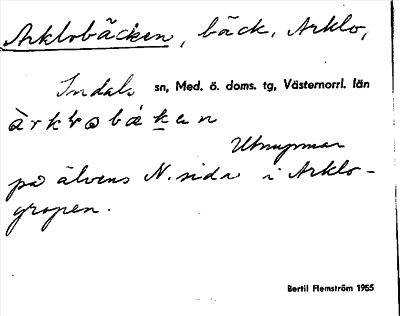 Arklobäcken, bäck, Arklo,
Indals sn, Med. ö. doms. tg, Västernorrl. län
Utmynnar
på älvens N. sida i Arklo-
gropen.
Bertil Flemström 1965